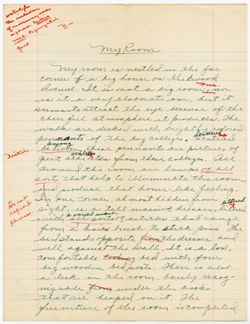 My Room
My room is nestled in the far
corner of a big house on Kirkwood
Avenue. It is not a big room, nor
is it a very elaborate one, but it
seems to attract the eye because of the
cheerful atmosphere it produces. The
walls are decked with bright colored
pennants of the big colleges.
these pennants are pictures of
great athletes from their colleges. All
around the room are lamps of all
sort that help to illuminate the room
and produce that home-like feeling.
In one corner, almost hidden from
is a
articles that range
from a hair brush to stick pins. The
bed stands opposite from this dresser, and
well against the wall. It is a low,
comfortable looking bed with four
big wooden bed posts. There is also
a desk in the room barely recog-
nizable from under the books
that are heaped on it. The
furniture of the room is completed